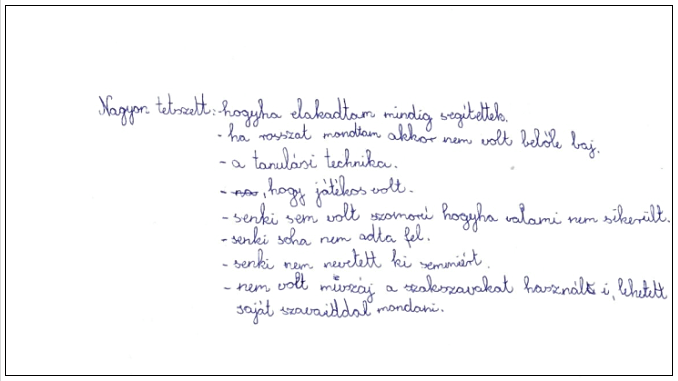 Nagyon tetszett: -hogyha elakadtam mindig segítettek.
- ha rosszat mondtam akkor nem volt belőle baj.
- a tanulási technika.
- , hogy játékos volt.
- senki sem volt szomorú hogyha valami nem sikerült.
- senki soha nem adta fel.
- senki nem nevetett ki semmiért.
- nem volt műszáj a szakszavakat használni, lehetett
saját szavaiddal mondani.